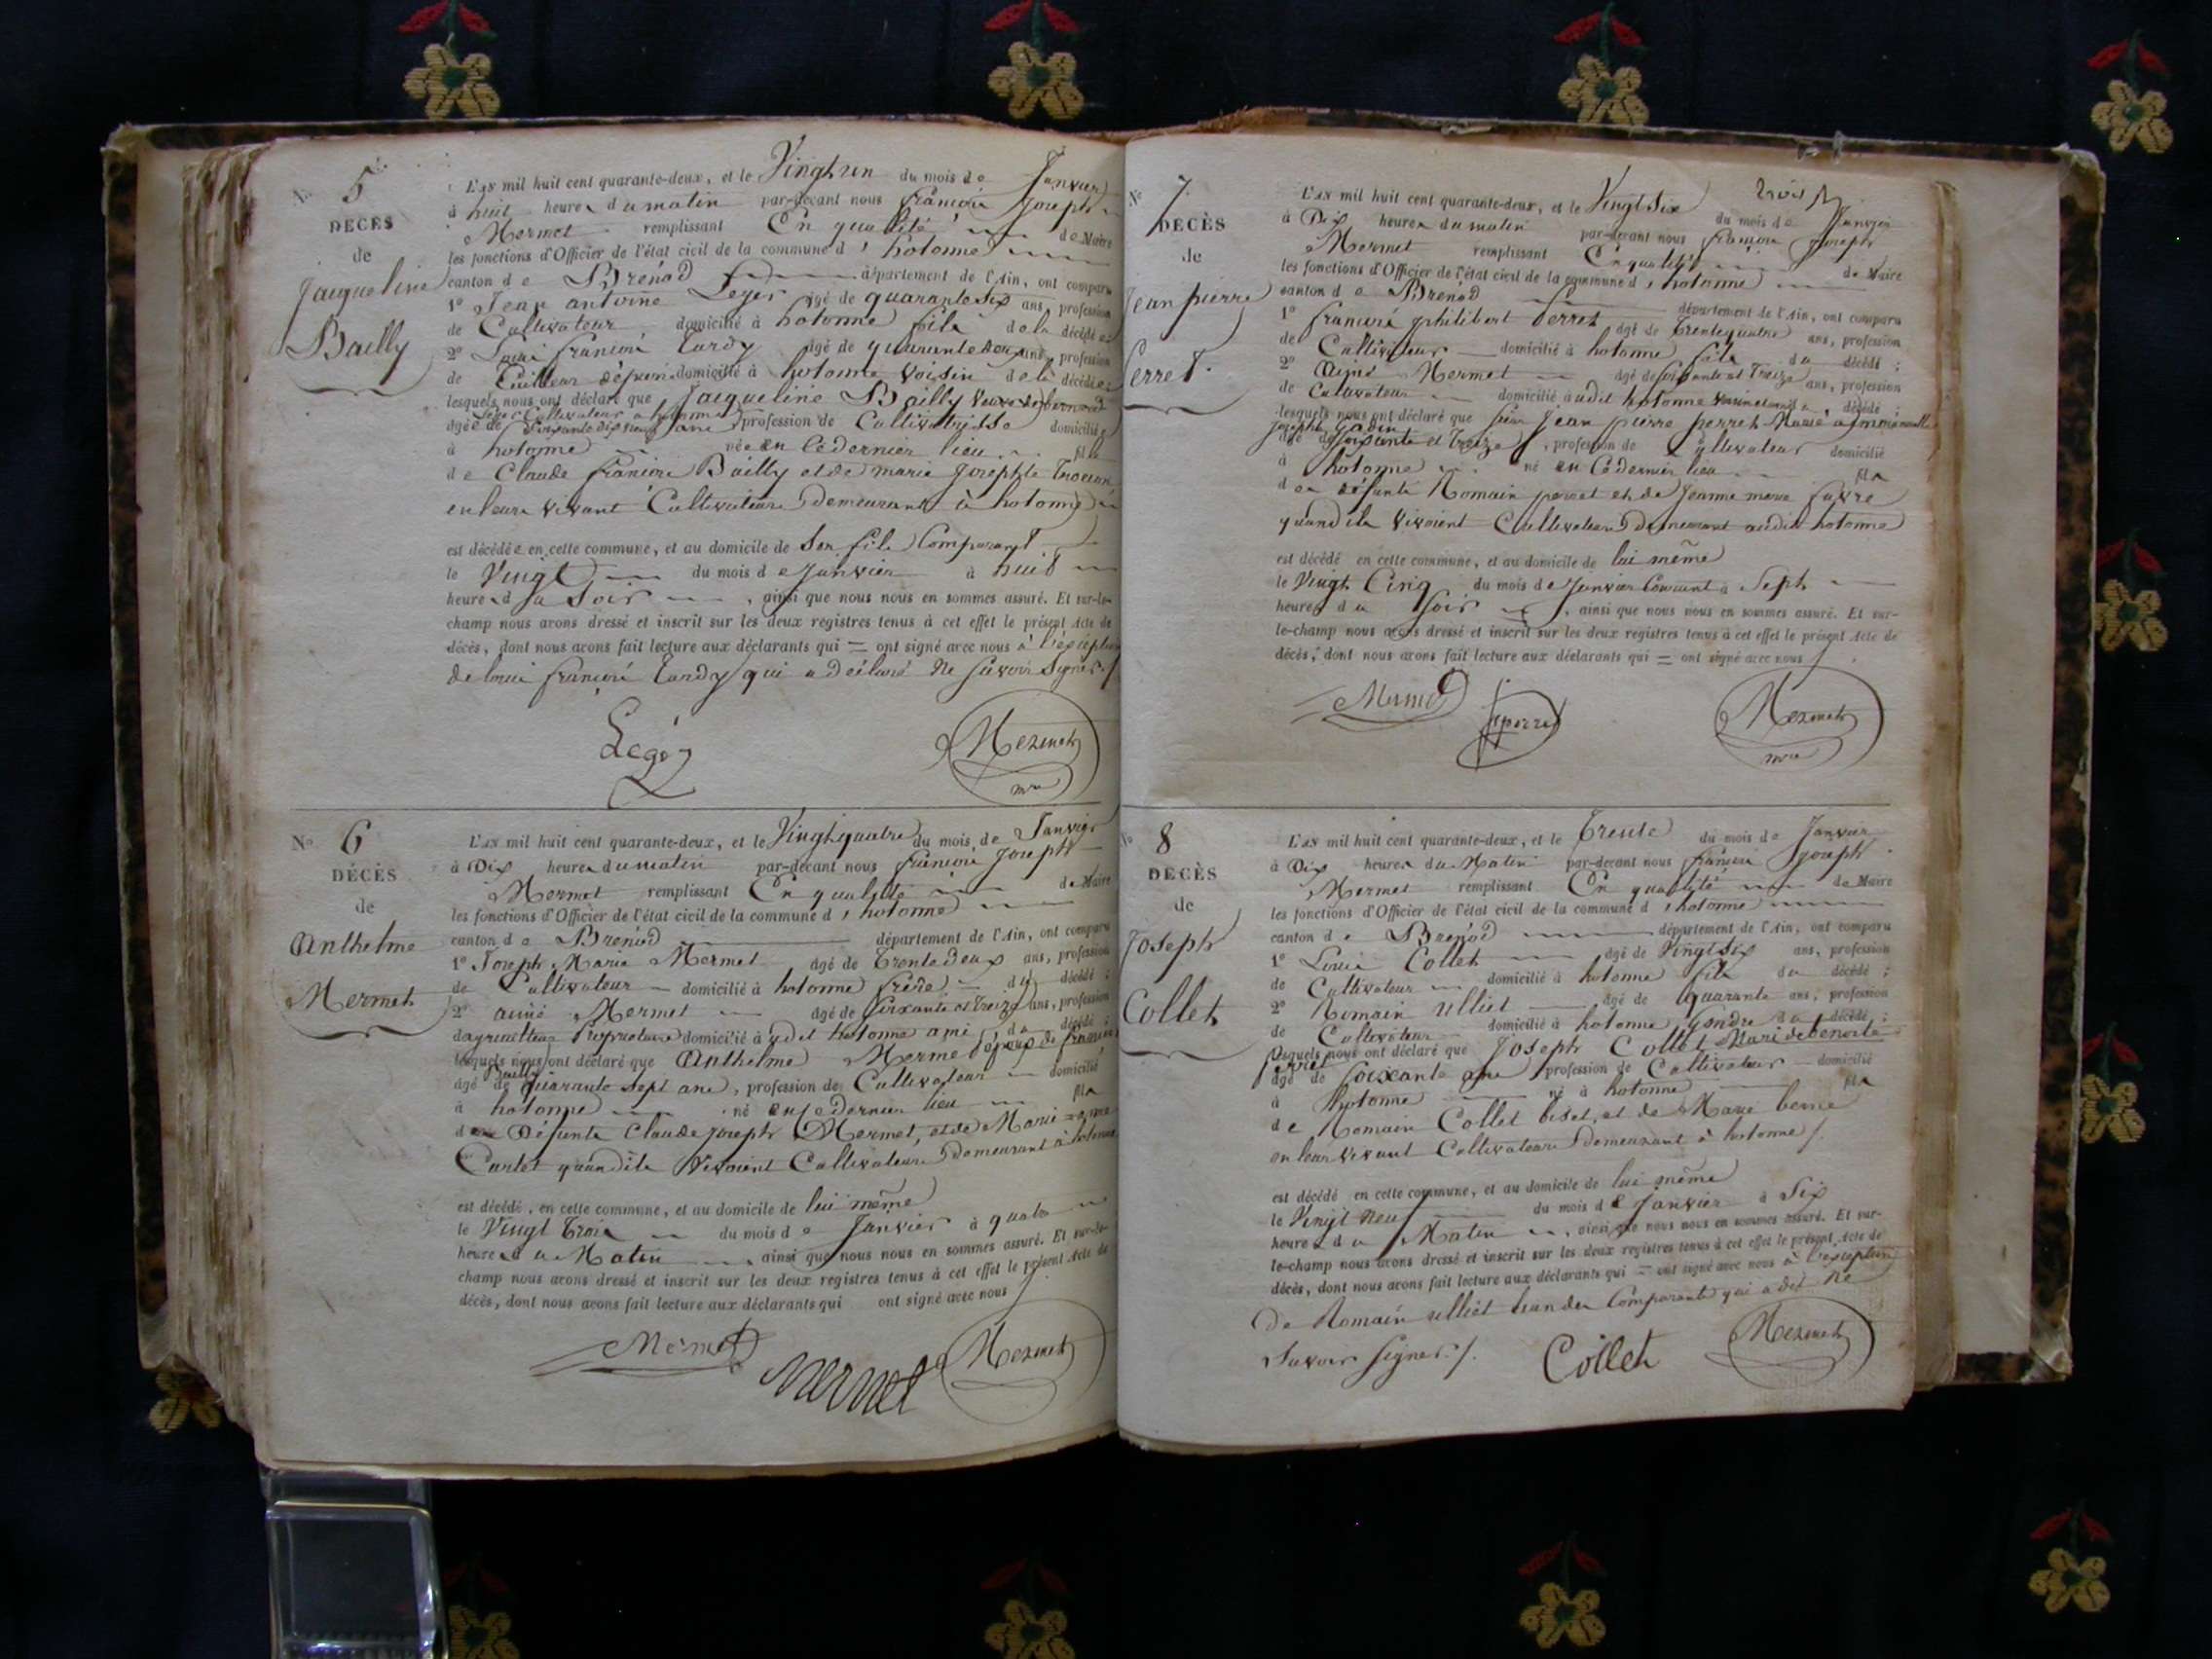 No 5
DÉCÈS
de
Jacqueline
Bailly
L'AN mil huit cent quarante-deux, et le Vingt un du mois de Janvier
à huit heures du matin par-devant nous françois Joseph
Mermet remplissant En qualité de Maire
les fonctions d'Officier de l'état civil de la commune d'hotonne
canton de Brenod département de l'Ain, ont comparu
1° Jean antoine Leger âgé de quarante six ans, profession
de Cultivateur, domicilié à hotonne fils de la décédée
2° Louis françois tardy âgé de quarante deux ans, profession
de domicilié à hotonne Voisin de la décédée
lesquels nous ont déclaré que Jacqueline Bailly Veuve de bernard
Leger Cultivateur a hotonne
âgée de Soixante dix neuf ans profession de Cultivatrisse domiciliée
à hotonne née en ce dernier lieu fille
de Claude françois Bailly et de marie Josephte
en leurs vivant Cultivateurs demeurant à hotonne
est décédée en cette commune, et au domicile de Son fils Comparant
le Vingt du mois de Janvier à huit
heures du Soir, ainsi que nous nous en sommes assuré. Et sur-le-
champ nous avons dressé et inscrit sur les deux registres tenus à cet effet le présent Acte de
décès, dont nous avons fait lecture aux déclarants qui = ont signé avec nous à l'éxception
de louis françois tardy qui a déclaré Ne Savoir Signer ./
Légér
Mermet
mre
No 6
DÉCÈS
de
Anthelme
Mermet
L'AN mil huit cent quarante-deux, et le Vingt quatre du mois de Janvier
à Dix heures du matin par-devant nous françois Joseph
Mermet remplissant En qualité de Maire
les fonctions d'Officier de l'état civil de la commune d'hotonne
canton de Brenod département de l'Ain, ont comparu
1° Joseph Marie Mermet âgé de trente deux ans, profession
de Cultivateur domicilié à hotonne frère du décédé ;
2° aimé Mermet âgé de Soixante et treize ans, profession
dagriculteur Propriétaire domicilié à udit hotonne ami du décédé ;
lesquels nous ont déclaré que Anthelme Mermet époux de
Bailly
âgé de quarante sept ans, profession de Cultivateur domicilié
à hotonne né en ce dernier lieu fils
de Défunts Claude Joseph Mermet, et de Marie
Carlet quand ils Vivoient Cultivateurs demeurant à hotonne
est décédé, en cette commune, et au domicile de lui même
le Vingt trois du mois de Janvier à quatre
heures du Matin, ainsi que nous nous en sommes assuré. Et sur-le-
champ nous avons dressé et inscrit sur les deux registres tenus à cet effet le présent Acte de
décès, dont nous avons fait lecture aux déclarants qui ont signé avec nous
Mermet
Mermet
Mermet
trois
No 7
DÉCÈS
de
Jean pierre
Perret
L'AN mil huit cent quarante-deux, et le Vingt Six du mois de Janvier
à Dix heures du matin par-devant nous françois Joseph
Mermet remplissant En qualité de Maire
les fonctions d'Officier de l'état civil de la commune d'hotonne
canton de Brenod département de l'Ain, ont comparu
1° françois philibert Perret âgé de trente quatre ans, profession
de Cultivateur domicilié à hotonne fils du décédé ;
2° Aimé Mermet âgé de Soixante et treize ans, profession
de Cultivateur domicilié à udit hotonne décédé ;
lesquels nous ont déclaré que jean pierre perret Marié a
Josephte
âgé de soixante et treize, profession de Cultivateur domicilié
à hotonne né en ce dernier lieu fils
des défunts Romain perret et de Jeanne marie favre
quand ils Vivoient Cultivateurs demeurant audit hotonne
est décédé en cette commune, et au domicile de lui même
le Vingt Cinq du mois de Janvier Courant à Sept
heures du Soir, ainsi que nous nous en sommes assuré. Et sur-
le-champ nous avons dressé et inscrit sur les deux registres tenus à cet effet le présent Acte de
décès, dont nous avons fait lecture aux déclarants qui = ont signé avec nous
Mermet
fperret
Mermet
mre
No 8
DÉCÈS
de
Joseph
Collet
L'AN mil huit cent quarante-deux, et le trente du mois de Janvier
à Dix heures du Matin par-devant nous françois Joseph
Mermet remplissant En qualité de Maire
les fonctions d'Officier de l'état civil de la commune d'hotonne
canton de Brenod département de l'Ain, ont comparu
1° Louis Collet âgé de Vingt Six ans, profession
de Cultivateur domicilié à hotonne fils du décédé ;
2° Romain ulliet âgé de quarante ans, profession
de Cultivateur domicilié à hotonne Gendre du décédé ;
lesquels nous ont déclaré que Joseph Collet Mari de benoite
perret
âgé de Soixante ans profession de Cultivateur domicilié
à hotonne né à hotonne fils
de Romain Collet biset, et de Marie berne
en leur vivant Cultivateurs demeurant à hotonne /.
est décédé en cette commune, et au domicile de lui même
le Vingt neuf du mois de Janvier à Six
heures du Matin, ainsi que nous nous en sommes assuré. Et sur-
le-champ nous avons dressé et inscrit sur les deux registres tenus à cet effet le présent Acte de
décès, dont nous avons fait lecture aux déclarants qui = ont signé avec nous à l'exception
De Romain ulliet lun des Comparants qui a dit Ne
Savoir Signer /.
Collet
Mermet